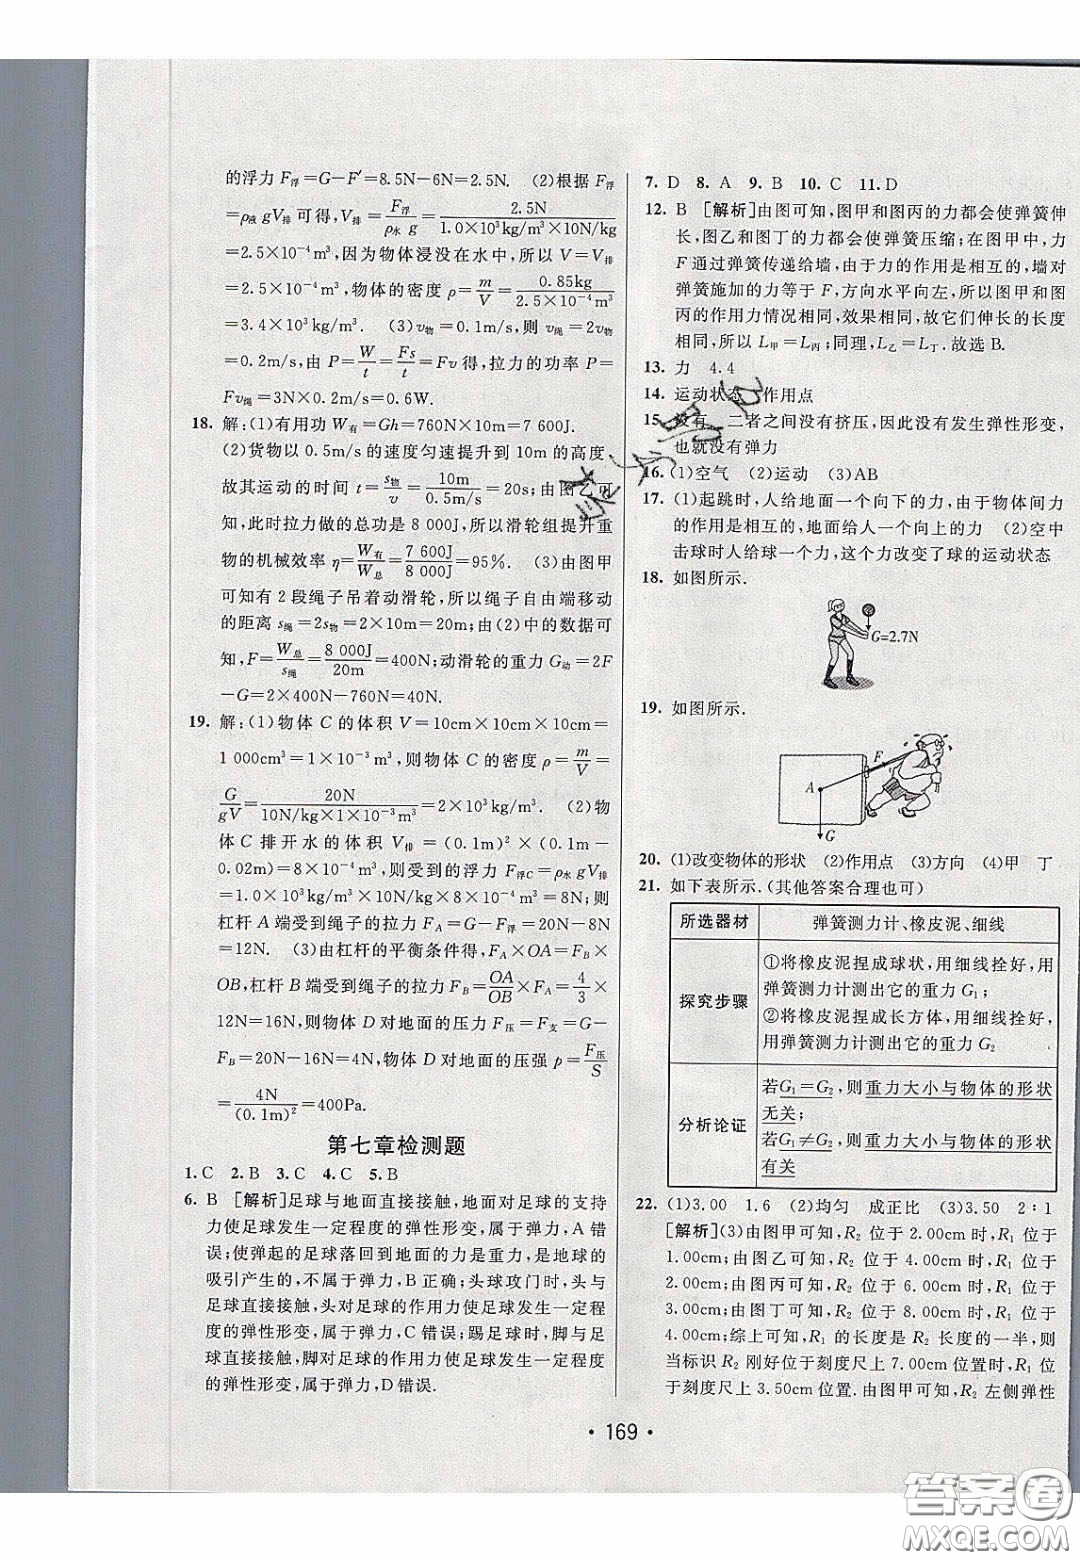 的浮力 F浮=G-F′=8.5N-6N=2.5N. (2)根据 F浮
=ρ液 gV排 可得,V排=F浮/ρ水 g=2.5N/1.0×10³kg/m³×10N/kg
=2.5×10⁻⁴m³,因为物体浸没在水中,所以 V=V排
=2.5×10⁻⁴m³,物体的密度 ρ=m/V=0.85kg/2.5×10⁻⁴m³
=3.4×10³kg/m³. (3)v物=0.1m/s,则 v绳=2v物
=0.2m/s,由 P=W/t=Fs/t=Fv得,拉力的功率 P=
Fv绳=3N×0.2m/s=0.6W.
18. 解:(1)有用功 W有=Gh=760N×10m=7 600J.
(2)货物以 0.5m/s 的速度匀速提升到 10m 的高度,
故其运动的时间 t=s物/v=10m/0.5m/s=20s;由图乙可
知,此时拉力做的总功是 8 000J,所以滑轮组提升重
物的机械效率 η=W有/W总=7 600J/8 000J=95%. (3)由图甲
可知有 2 段绳子吊着动滑轮,所以绳子自由端移动
的距离 s绳=2s物=2×10m=20m;由(2)中的数据可
知,F=W总/s绳=8 000J/20m=400N;动滑轮的重力 G动=2F
-G=2×400N-760N=40N.
19. 解:(1)物体 C 的体积 V=10cm×10cm×10cm=
1 000cm³=1×10⁻³m³,则物体 C 的密度 ρ=m/V=
G/gV=20N/10N/kg×1×10⁻³m³=2×10³kg/m³. (2)物
体 C 排开水的体积 V排=(0.1m)²×(0.1m-
0.02m)=8×10⁻⁴m³,则受到的浮力 F浮C=ρ水 gV排
=1.0×10³kg/m³×10N/kg×8×10⁻⁴m³=8N;则
杠杆 A 端受到绳子的拉力 FA=G-F浮=20N-8N
=12N. (3)由杠杆的平衡条件得,FA×OA=FB×
OB,杠杆 B 端受到绳子的拉力 FB=OA/OB×FA=4/3×
12N=16N,则物体 D 对地面的压力 F压=F支=G-
FB=20N-16N=4N,物体 D 对地面的压强 p=F压/S
=4N/(0.1m)²=400Pa.
第七章检测题
1. C 2. B 3. C 4. C 5. B
6. B [解析]足球与地面直接接触,地面对足球的支持
力使足球发生一定程度的弹性形变,属于弹力,A 错
误;使弹起的足球落回到地面的力是重力,是地球的
吸引产生的,不属于弹力,B 正确;头球攻门时,头与
足球直接接触,头对足球的作用力使足球发生一定程
度的弹性形变,属于弹力,C 错误;踢足球时,脚与足
球直接接触,脚对足球的作用力使足球发生一定程度
的弹性形变,属于弹力,D 错误.
7. D 8. A 9. B 10. C 11. D
12. B [解析]由图可知,图甲和图丙的力都会使弹簧伸
长,图乙和图丁的力都会使弹簧压缩;在图甲中,力
F 通过弹簧传递给墙,由于力的作用是相互的,墙对
弹簧施加的力等于 F,方向水平向左,所以图甲和图
丙的作用力情况相同,效果相同,故它们伸长的长度
相同,所以 L甲=L丙;同理,L乙=L丁.故选 B.
13. 力 4.4
14. 运动状态 作用点
15. 没有 二者之间没有挤压,因此没有发生弹性形变,
也就没有弹力
16. (1)空气 (2)运动 (3)AB
17. (1)起跳时,人给地面一个向下的力,由于物体间力
的作用是相互的,地面给人一个向上的力 (2)空中
击球时人给球一个力,这个力改变了球的运动状态
18. 如图所示.
G=2.7N
19. 如图所示.
F
A
G
20. (1)改变物体的形状 (2)作用点 (3)方向 (4)甲 丁
21. 如下表所示.(其他答案合理也可)
所选器材 弹簧测力计、橡皮泥、细线
探究步骤
①将橡皮泥捏成球状,用细线拴好,用
弹簧测力计测出它的重力 G₁;
②将橡皮泥捏成长方体,用细线拴好,
用弹簧测力计测出它的重力 G₂
分析论证
若G₁=G₂,则重力大小与物体的形状
无关;
若G₁≠G₂,则重力大小与物体的形状
有关
22. (1)3.00 1.6 (2)均匀 成正比 (3)3.50 2∶1
[解析](3)由图甲可知,R₂ 位于 2.00cm 时,R₁ 位于
1.00cm;由图乙可知,R₂ 位于 4.00cm 时,R₁ 位于
2.00cm;由图丙可知,R₂ 位于 6.00cm 时,R₁ 位于
3.00cm;由图丁可知,R₂ 位于 8.00cm 时,R₁ 位于
4.00cm;综上可知,R₁ 的长度是 R₂ 长度的一半,则
当标识 R₂ 刚好位于刻度尺上 7.00cm 位置时,R₁ 位
于刻度尺上 3.50cm 位置.由图甲可知,R₂ 左侧弹性
• 169 •
答案圈
MXQE.COM